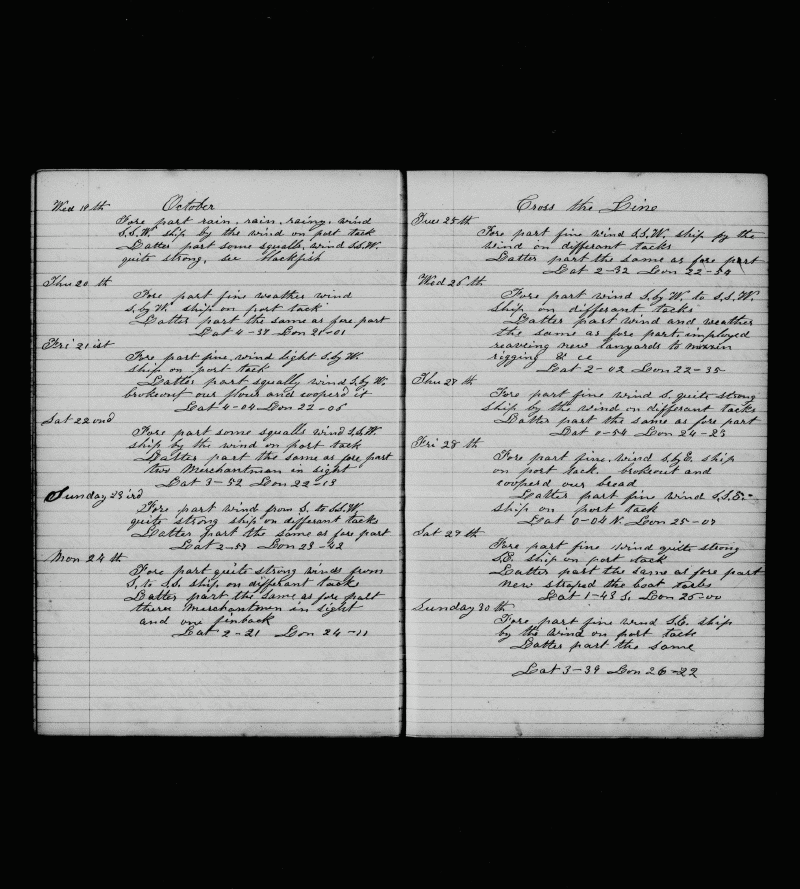 October
Wed 19 th
Fore part rain, rain, rainy, wind
S.S.W. ship by the wind on port tack
Latter part some squalls, wind S.S.W.
quite strong, see blackfish
Thu 20 th
Fore part fine weather wind
S. by W. ship on port tack
Latter part the same as fore part
Lat 4-37 Lon 21-01
Fri 21 ist
Fore part fine, wind light S. by W.
ship on port tack
Latter part squally wind S. by W.
brokeout our flour and cooperd it
Lat 4-04 Lon 22-06
Sat 22 ond
Fore part some squalls wind S.S.W.
ship by the wind on port tack
Latter part the same as fore part
two Merchantman in sight
Lat 3-52 Lon 22-13
Sunday 23 ird
Fore part wind from S. to S.S.W.
quite strong ship on differant tacks
Latter part the same as fore part
Lat 2-57 Lon 23-42
Mon 24 th
Fore part quite strong winds from
S. to S.S. ship on differant tack
Latter part the same as fore palt
three Merchantmen in sight
and one finback
Lat 2-21 Lon 24-11
Cross the Line
Tue 25 th
Fore part fine wind S.S.W. ship by the
wind on differant tacks
Latter part the same as fore part
Lat 2-32 Lon 22-54
Wed 26 th
Fore part wind S. by W. to S.S.W.
ship on differant tacks
Latter part wind and weather
the same as fore part, imployed
reaveing new lanyards to mizzin
rigging & cc
Lat 2-02 Lon 22-35
Thu 27 th
Fore part fine wind S. quite strong
ship by the wind on differant tacks
Latter part the same as fore part
Lat 0-54 Lon 24-23
Fri 28 th
Fore part fine, wind S. by E. ship
on port tack, brokeout and
cooperd our bread
Latter part fine wind S.S.E.
ship on port tack
Lat 0-04 N. Lon 25-07
Sat 29 th
Fore part fine wind quite strong
S.E. ship on port tack
Latter part the same as fore part
new straped the boat
Lat 1-43 S. Lon 26-00
Sunday 30 th
Fore part fine wind S.E. ship
by the wind on port tack
Latter part the same
Lat 3-39 Lon 26-22